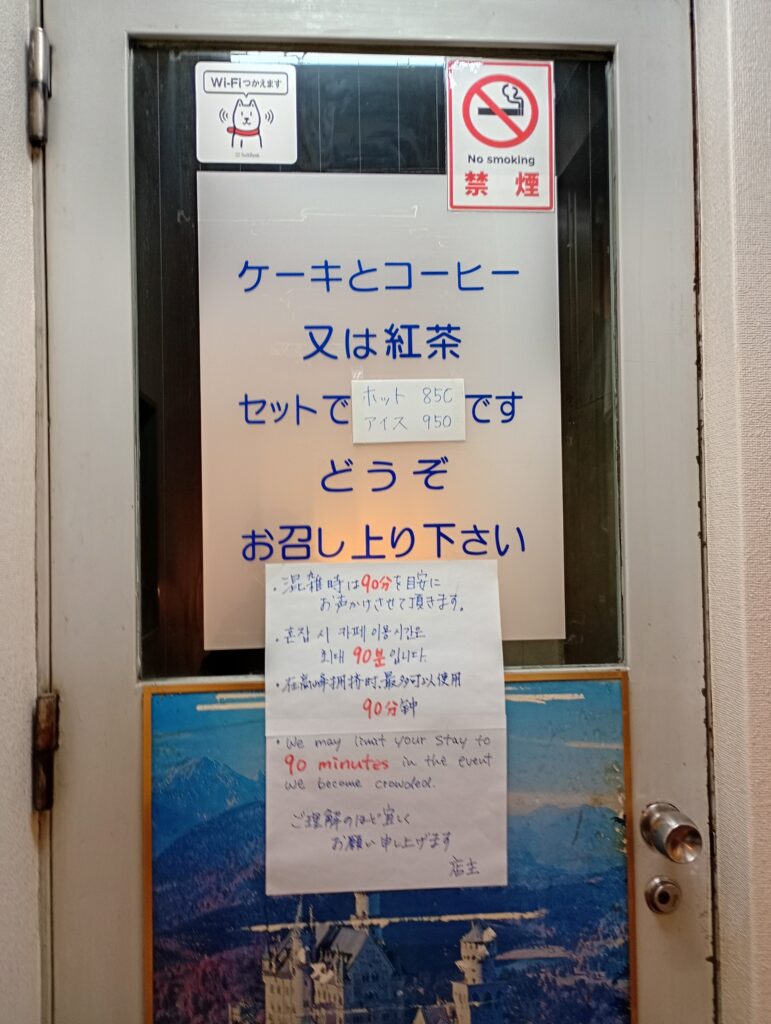 Wi-Fiつかえます
SoftBank
No smoking
禁煙
ケーキとコーヒー
又は紅茶
セットで
ホット 850
アイス 950
です
どうぞ
お召し上り下さい
・混雑時は90分を目安に
お声かけさせて頂きます。
・혼잡 시 카페 이용시간은
최대 90분입니다.
・在高峰拥挤时,最多可以使用
90分钟
・We may limit your stay to
90 minutes in the event
we become crowded.
ご理解のほど宜しく
お願い申し上げます
店主